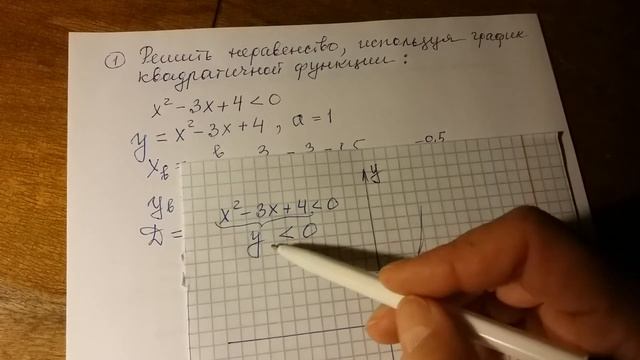 ① Решить неравенство, используя график
квадратичной функции:
x² - 3x + 4 < 0
y = x² - 3x + 4, a = 1
x_в =
-0,5
y_в
D =
y
x² - 3x + 4 < 0
y < 0